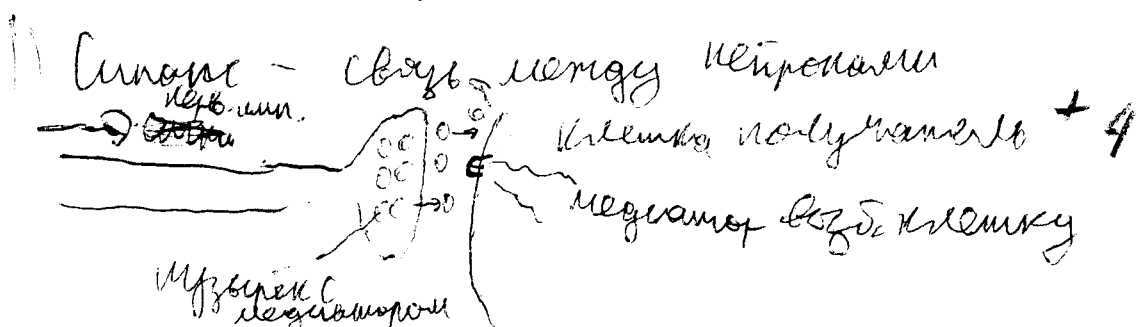 Синапс – связь между нейронами
нерв. имп.
клетка получатель + 4
медиатор возб. клетку
пузырёк с
медиатором